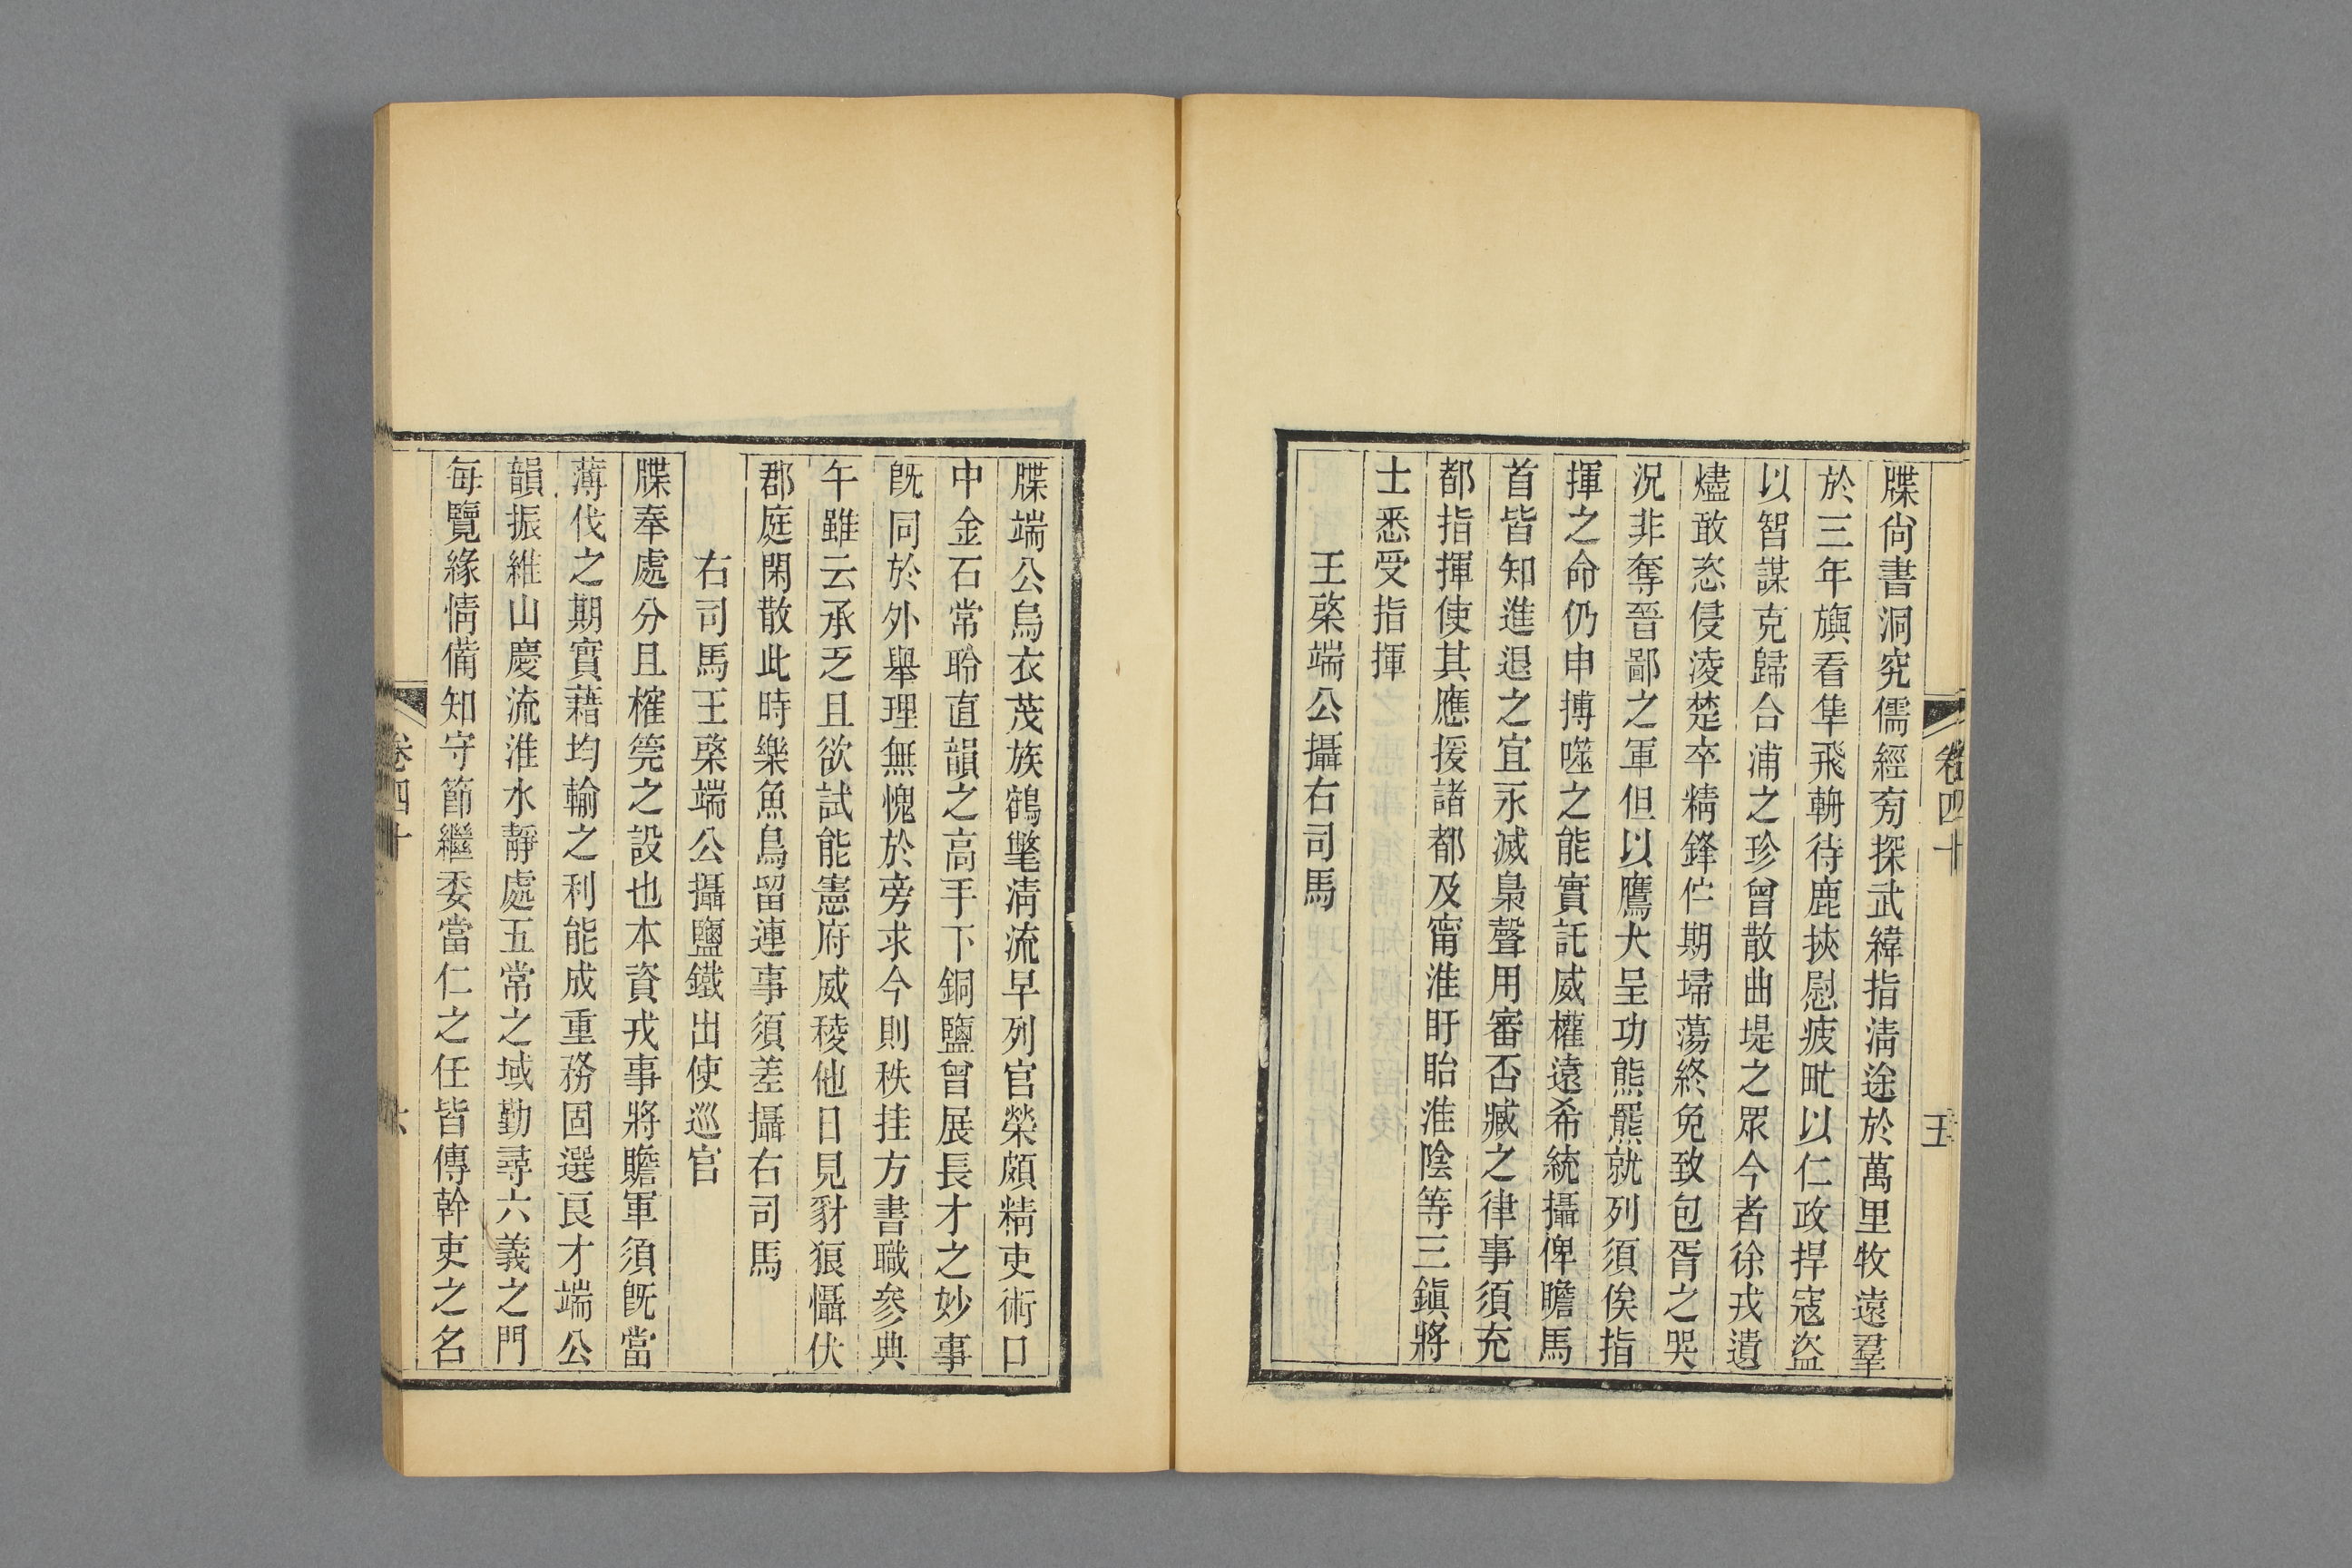 卷四十
五
牒尙書洞究儒經旁探武緯指淸途於萬里牧遠羣
於三年旟看隼飛輈待鹿挾慰疲甿以仁政捍寇盜
以智謀克歸合浦之珍曾散曲堤之眾今者徐戎遺
燼敢恣侵淩楚卒精鋒伫期埽蕩終免致包胥之哭
況非奪晉鄙之軍但以鷹犬呈功熊羆就列須俟指
揮之命仍申搏噬之能實託威權遠希統攝俾瞻馬
首皆知進退之宜永滅梟聲用審否臧之律事須充
都指揮使其應援諸都及甯淮盱眙淮陰等三鎭將
士悉受指揮
王棨端公攝右司馬
牒端公烏衣茂族鶴氅淸流早列官榮頗精吏術口
中金石常聆直韻之高手下銅鹽曾展長才之妙事
旣同於外舉理無愧於旁求今則秩挂方書職參典
午雖云承乏且欲試能憲府威稜他日見豺狼懾伏
郡庭閑散此時樂魚鳥留連事須差攝右司馬
右司馬王棨端公攝鹽鐵出使巡官
牒奉處分且榷筦之設也本資戎事將贍軍須旣當
薄伐之期實藉均輸之利能成重務固選良才端公
韻振維山慶流淮水靜處五常之域勤尋六義之門
每覽緣情備知守節繼委當仁之任皆傳幹吏之名
卷四十
六